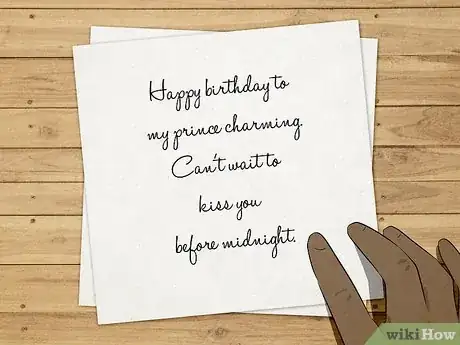 Happy birthday to
my prince charming.
Can't wait to
kiss you
before midnight.
wikiHow